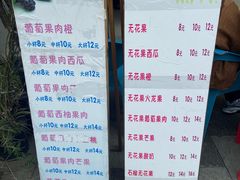 葡萄果肉橙
小杯8元 中杯10元 大杯12元
葡萄果肉西瓜
小杯8元 中杯10元 大杯12元
葡萄果肉
小杯8元 中杯10元 大杯12元
葡萄西柚果肉
小杯8元 中杯10元 大杯14元
葡萄
中杯12元 大杯14元
葡萄果肉芒果
中杯12元 大杯14元
无花果 8元 10元 12元
无花果西瓜 8元 10元 12元
无花果橙 8元 10元 12元
无花果火龙果 8元 10元 12元
无花果葡萄果肉 8元 10元 12元
无花果芒果 8元 10元 12元
无花果酸奶 10元 12元 14元
石榴无花果 10元 12元 14元